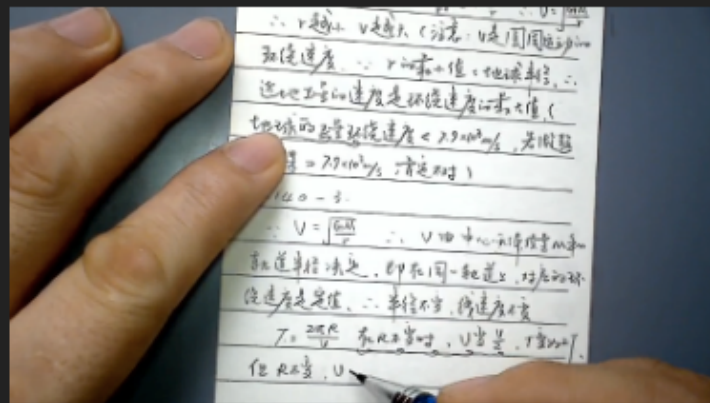 ∴ V=√(GM/r)
∴ r越小 V越大 (注意: V是圆周运动的
环绕速度. ∵ r的最小值=地球半径, ∴
近地卫星的速度是环绕速度的最大值 (
地球的卫星环绕速度 < 7.9×10³m/s, 若
= 7.9×10³m/s, 肯定不对)
40-3.
∴ V=√(GM/r) ∴ V由中心天体质量M和
轨道半径决定, 即在同一轨道上, 对应的环
绕速度是定值. ∴ 半径不变, 线速度不变
T=2πR/V 在R不变时, V
但 R不变, V